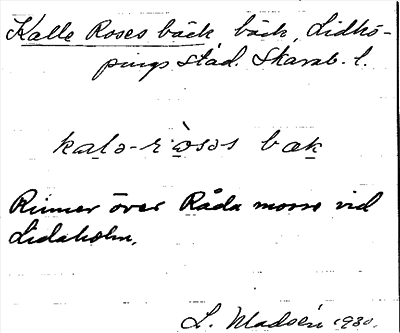 Kalle Roses bäck bäck, Lidkö-
pings stad. Skarab. l.
kalə-ròsəs bæk
Rinner över Råda mosse vid
Lidaholm.
L. Madsén 1930.